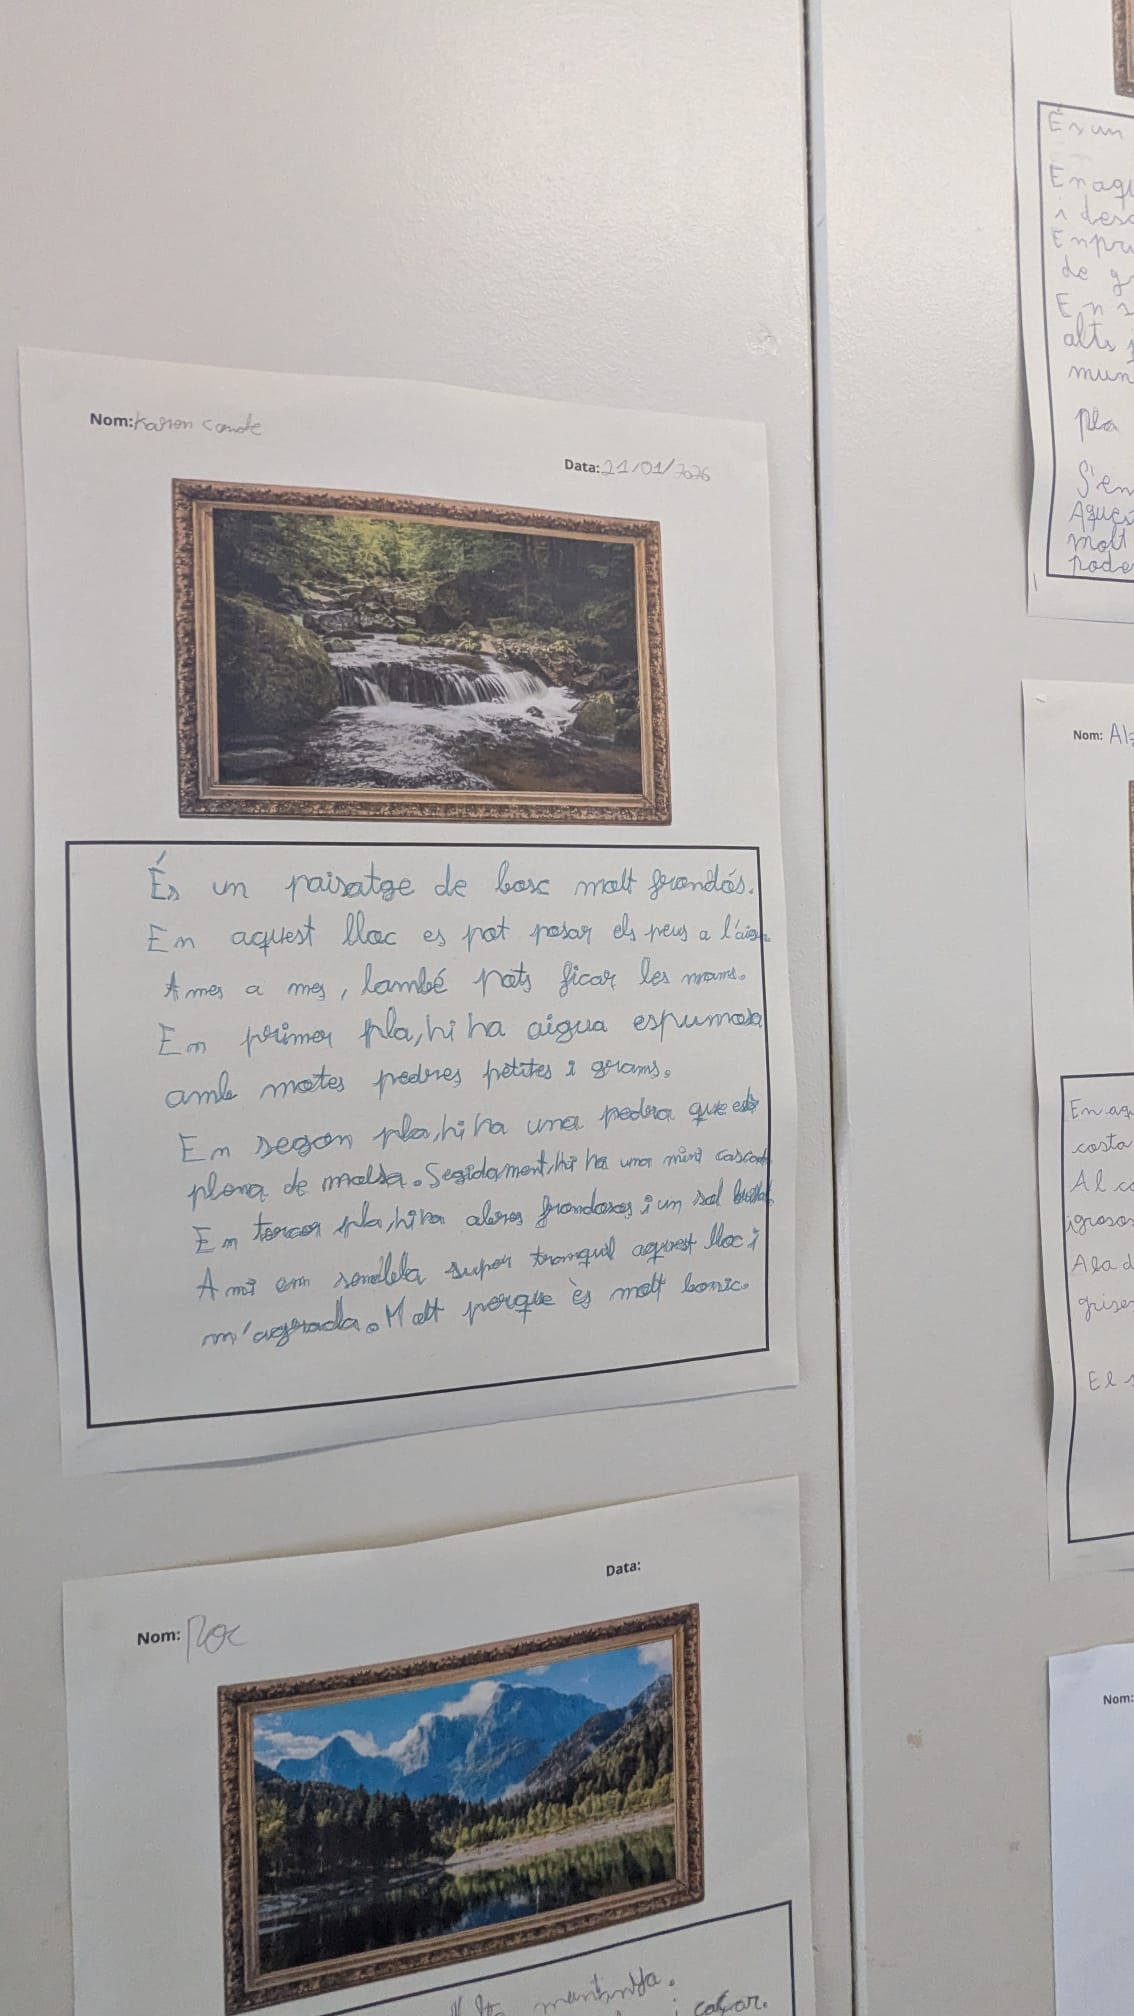 Nom: Karen Conde
Data: 21/01/2026
És un paisatge de bosc molt frondós.
En aquest lloc es pot posar els peus a l'aigua
A mes a mes, també pots ficar les mans.
En primer pla, hi ha aigua espumosa
amb moltes pedres petites i grans.
En segon pla, hi ha una pedra que està
plena de molsa. Segidament, hi ha una mini
En tercer pla, hi ha abres frondosos i un sol
A mi em sembla super tranquil aquest lloc i
m'agrada. Molt perque ès molt bonic.
Data:
Nom: Roc
muntanya.
i
És un
En aqu
i desc
En pri
de g
En s
alts i
mun
pla
S'en
Aques
molt
pode
Nom: Al
En aq
costa
Al co
A la d
grises
El s
Nom: